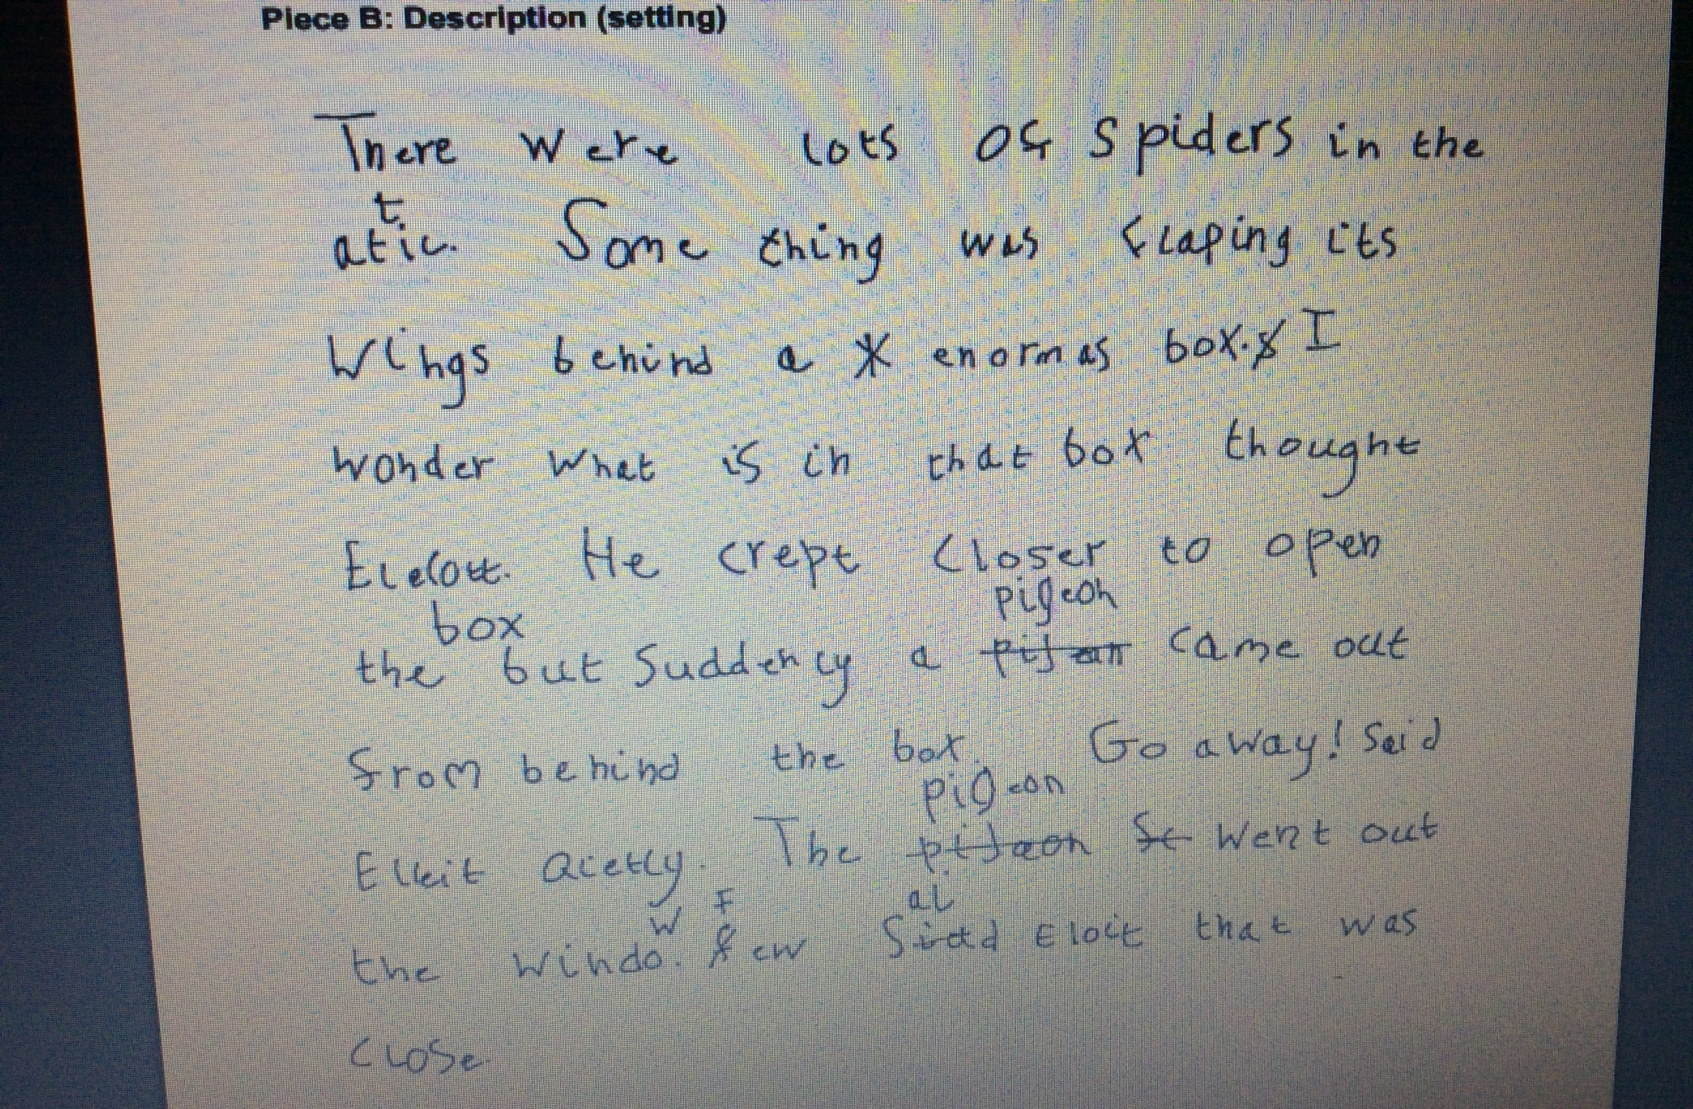 Piece B: Description (setting)
There were lots of spiders in the
t
atic. Some thing was flaping its
wings behind a enormas box. I
wonder what is in that box thought
He crept closer to open
box pigeon
the but suddenly a pijan came out
from behind the box. Go away! Said
pigeon
Elleit The pijaon went out
w F al
the windo. few Siad Eloit that was
close.